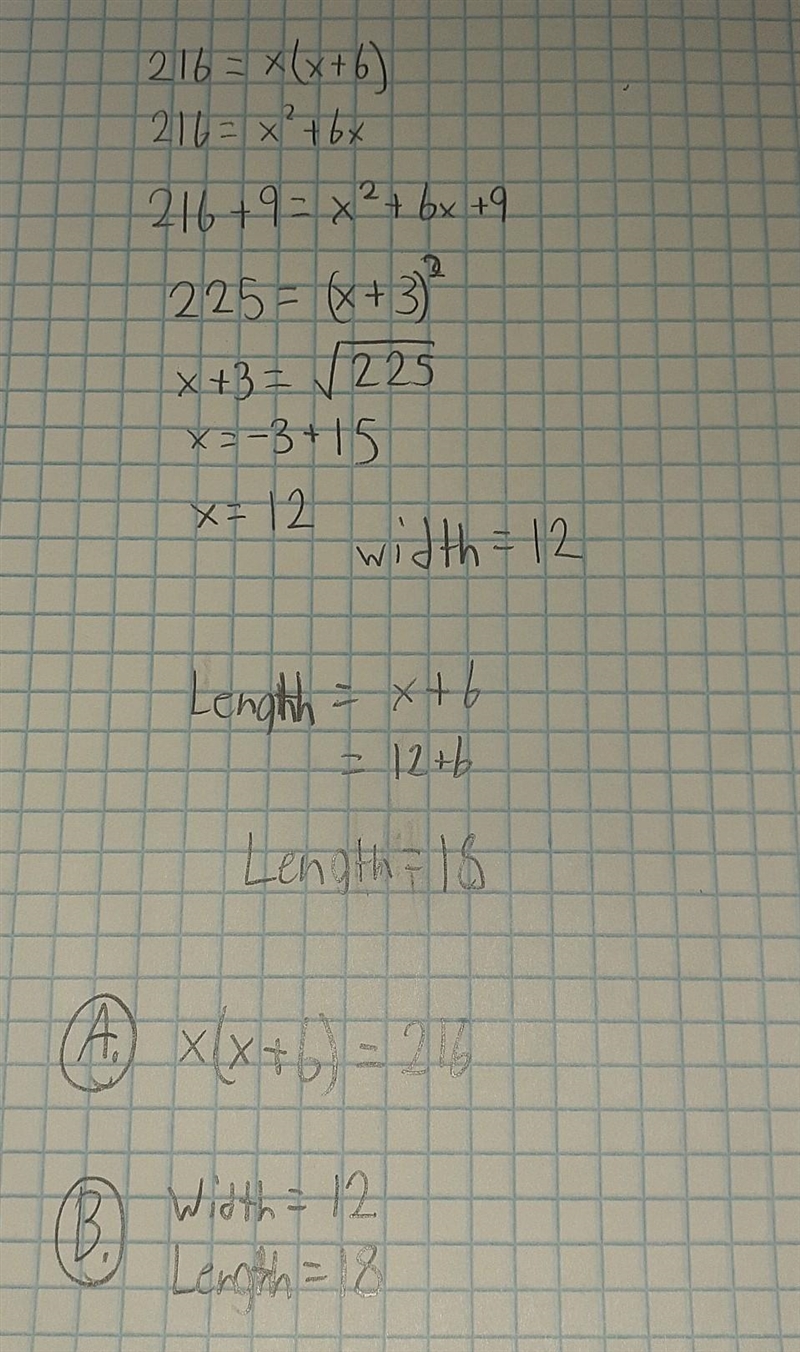 216 = x(x+6)
216 = x² + 6x
216 + 9 = x² + 6x + 9
225 = (x + 3)²
x + 3 = √225
x = -3 + 15
x = 12
width = 12
Length = x + 6
= 12 + 6
Length = 18
A. x(x+6) = 216
B. Width = 12
Length = 18